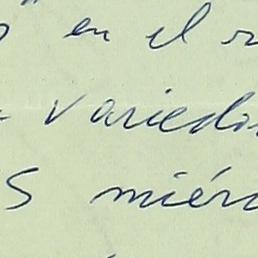 " en el
varied
s miér